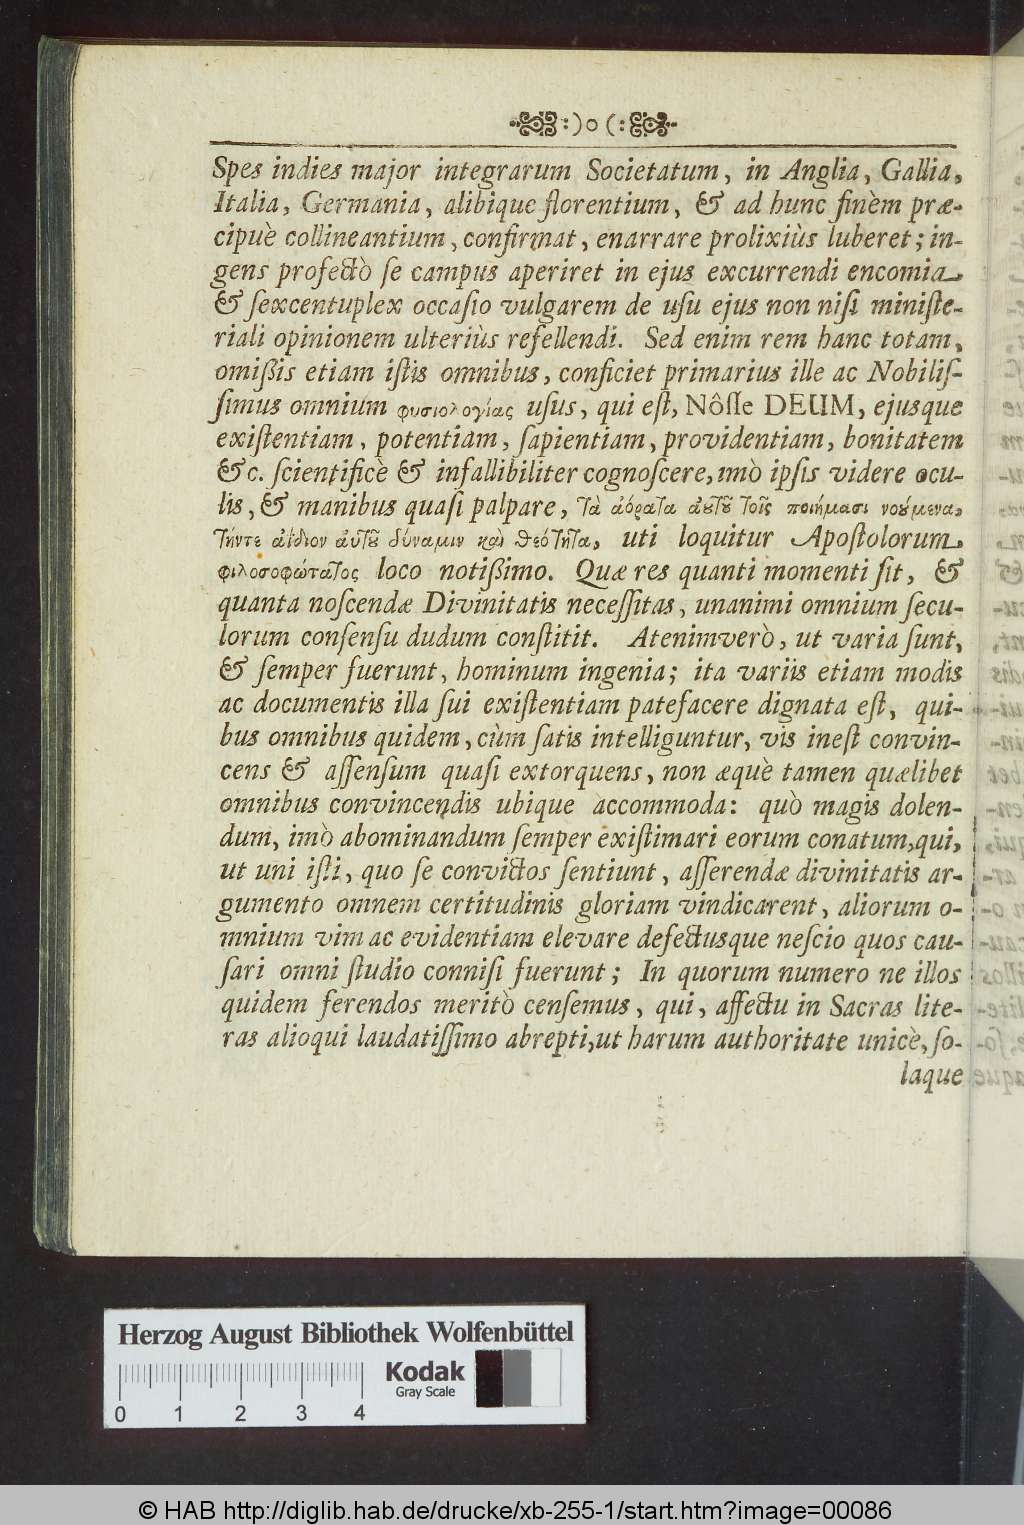 :)o(:
Spes indies major integrarum Societatum, in Anglia, Gallia,
Italia, Germania, alibique florentium, & ad hunc finèm præ-
cipuè collineantium, confirmat, enarrare prolixiùs luberet; in-
gens profectò se campus aperiret in ejus excurrendi encomia,
& sexcentuplex occasio vulgarem de usu ejus non nisi ministe-
riali opinionem ulteriùs refellendi. Sed enim rem hanc totam,
omißis etiam istis omnibus, conficiet primarius ille ac Nobilis-
simus omnium φυσιολογίας usus, qui est, Nôsse DEUM, ejusque
existentiam, potentiam, sapientiam, providentiam, bonitatem
&c. scientificè & infallibiliter cognoscere, imò ipsis videre ocu-
lis, & manibus quasi palpare, τὰ ἀόρατα αυτοῦ τοῖς ποιήμασι νούμενα,
τήντε ἀΐδιον αὐτοῦ δύναμιν καὶ θεότητα, uti loquitur Apostolorum
φιλοσοφώτατος loco notißimo. Quæ res quanti momenti sit, &
quanta noscendæ Divinitatis necessitas, unanimi omnium secu-
lorum consensu dudum constitit. Atenimverò, ut varia sunt,
& semper fuerunt, hominum ingenia; ita variis etiam modis
ac documentis illa sui existentiam patefacere dignata est, qui-
bus omnibus quidem, cùm satis intelliguntur, vis inest convin-
cens & assensum quasi extorquens, non æquè tamen quælibet
omnibus convincendis ubique accommoda: quò magis dolen-
dum, imò abominandum semper existimari eorum conatum, qui,
ut uni isti, quo se convictos sentiunt, asserendæ divinitatis ar-
gumento omnem certitudinis gloriam vindicarent, aliorum o-
mnium vim ac evidentiam elevare defectusque nescio quos cau-
sari omni studio connisi fuerunt; In quorum numero ne illos
quidem ferendos meritò censemus, qui, affectu in Sacras lite-
ras alioqui laudatissimo abrepti, ut harum authoritate unicè, so-
laque
Herzog August Bibliothek Wolfenbüttel
Kodak
Gray Scale
0 1 2 3 4
© HAB http://diglib.hab.de/drucke/xb-255-1/start.htm?image=00086